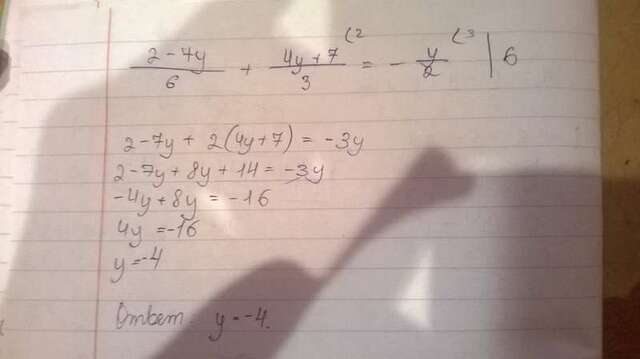 (2 (3
2-7y/6 + 4y+7/3 = - y/2 | 6
2-7y + 2(4y+7) = -3y
2-7y+8y+14=-3y
-4y+8y = -16
4y =-16
y=-4
Ответ. y=-4.